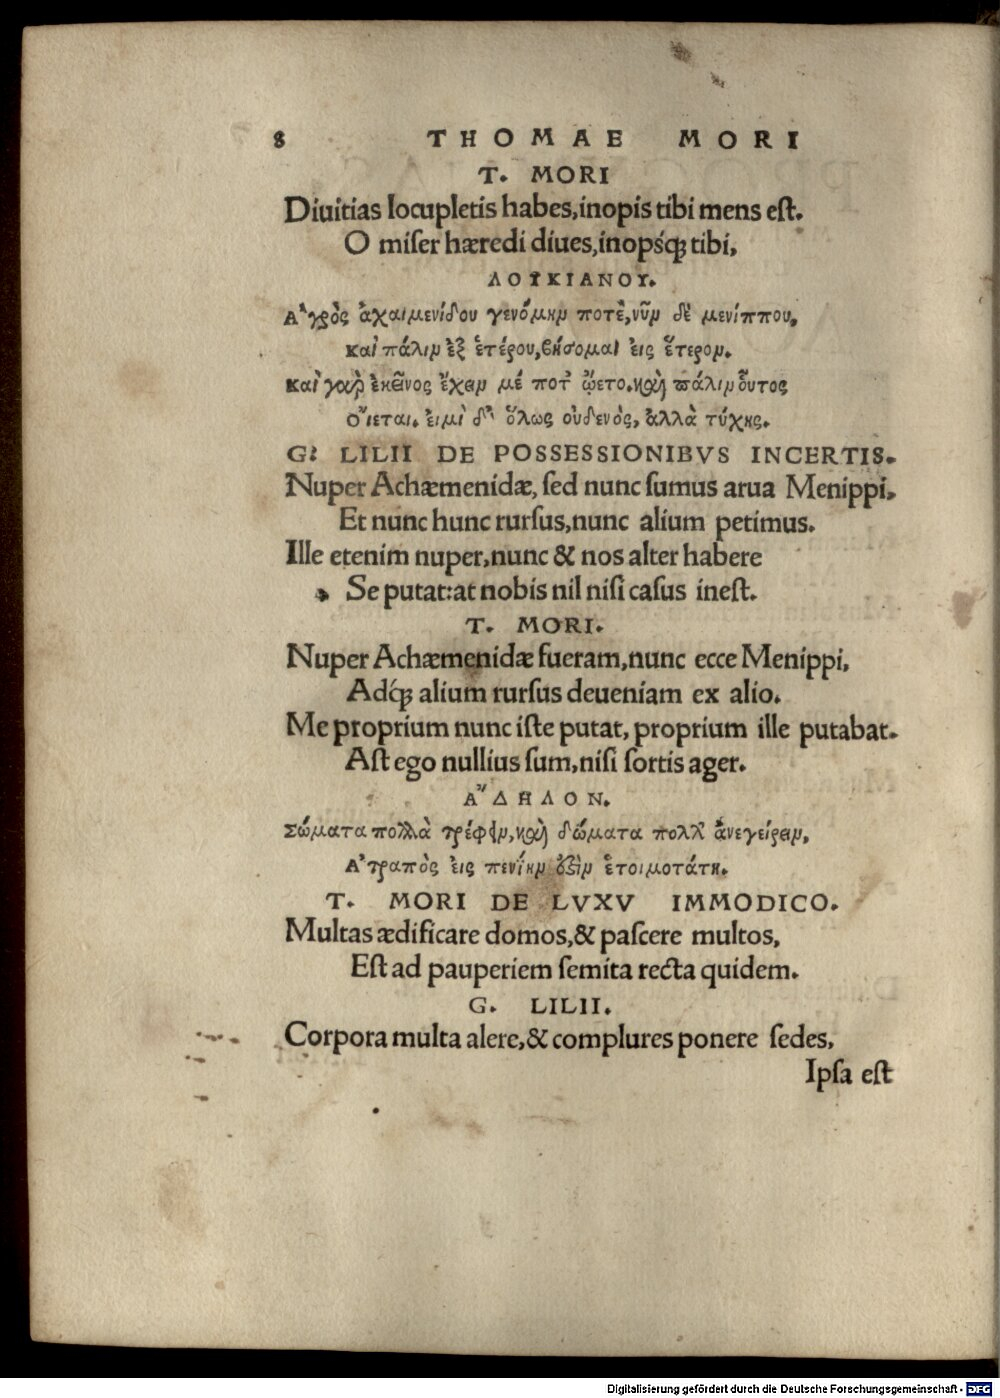 8 THOMAE MORI
T. MORI
Diuitias locupletis habes,inopis tibi mens eſt.
O miſer hæredi diues,inopśq́ꝫ tibi,
ΛΟΥΚΙΑΝΟΥ.
Ἀγρὸς ἀχαιμενίδου γενόμην ποτὲ,νῦν δὲ μενίππου,
Καὶ πάλιν ἐξ ἑτέρου,θήσομαι εἰς ἕτερον.
Καὶ γὰρ ἐκεῖνος ἔχειν μέ ποτ' ᾤετο.καὶ πάλιν οὗτος
Οἴεται. εἰμὶ δ' ὅλως οὐδενὸς, ἀλλὰ τύχης.
G: LILII DE POSSESSIONIBVS INCERTIS.
Nuper Achæmenidæ, ſed nunc ſumus arua Menippi,
Et nunc hunc rurſus,nunc alium petimus.
Ille etenim nuper,nunc & nos alter habere
Se putat:at nobis nil niſi caſus ineſt.
T. MORI.
Nuper Achæmenidæ fueram,nunc ecce Menippi,
Adq́ꝫ alium rurſus deueniam ex alio.
Me proprium nunc iſte putat, proprium ille putabat.
Aſt ego nullius ſum,niſi ſortis ager.
ἌΔΗΛΟΝ.
Σώματα πολλὰ τρέφειν,καὶ δώματα πολλ' ἀνεγείρειν,
Ἀτραπὸς εἰς πενίην ἐστὶν ἑτοιμοτάτη.
T. MORI DE LVXV IMMODICO.
Multas ædificare domos,& paſcere multos,
Eſt ad pauperiem ſemita recta quidem.
G. LILII.
Corpora multa alere,& complures ponere ſedes,
Ipſa eſt
Digitalisierung gefördert durch die Deutsche Forschungsgemeinschaft - DFG